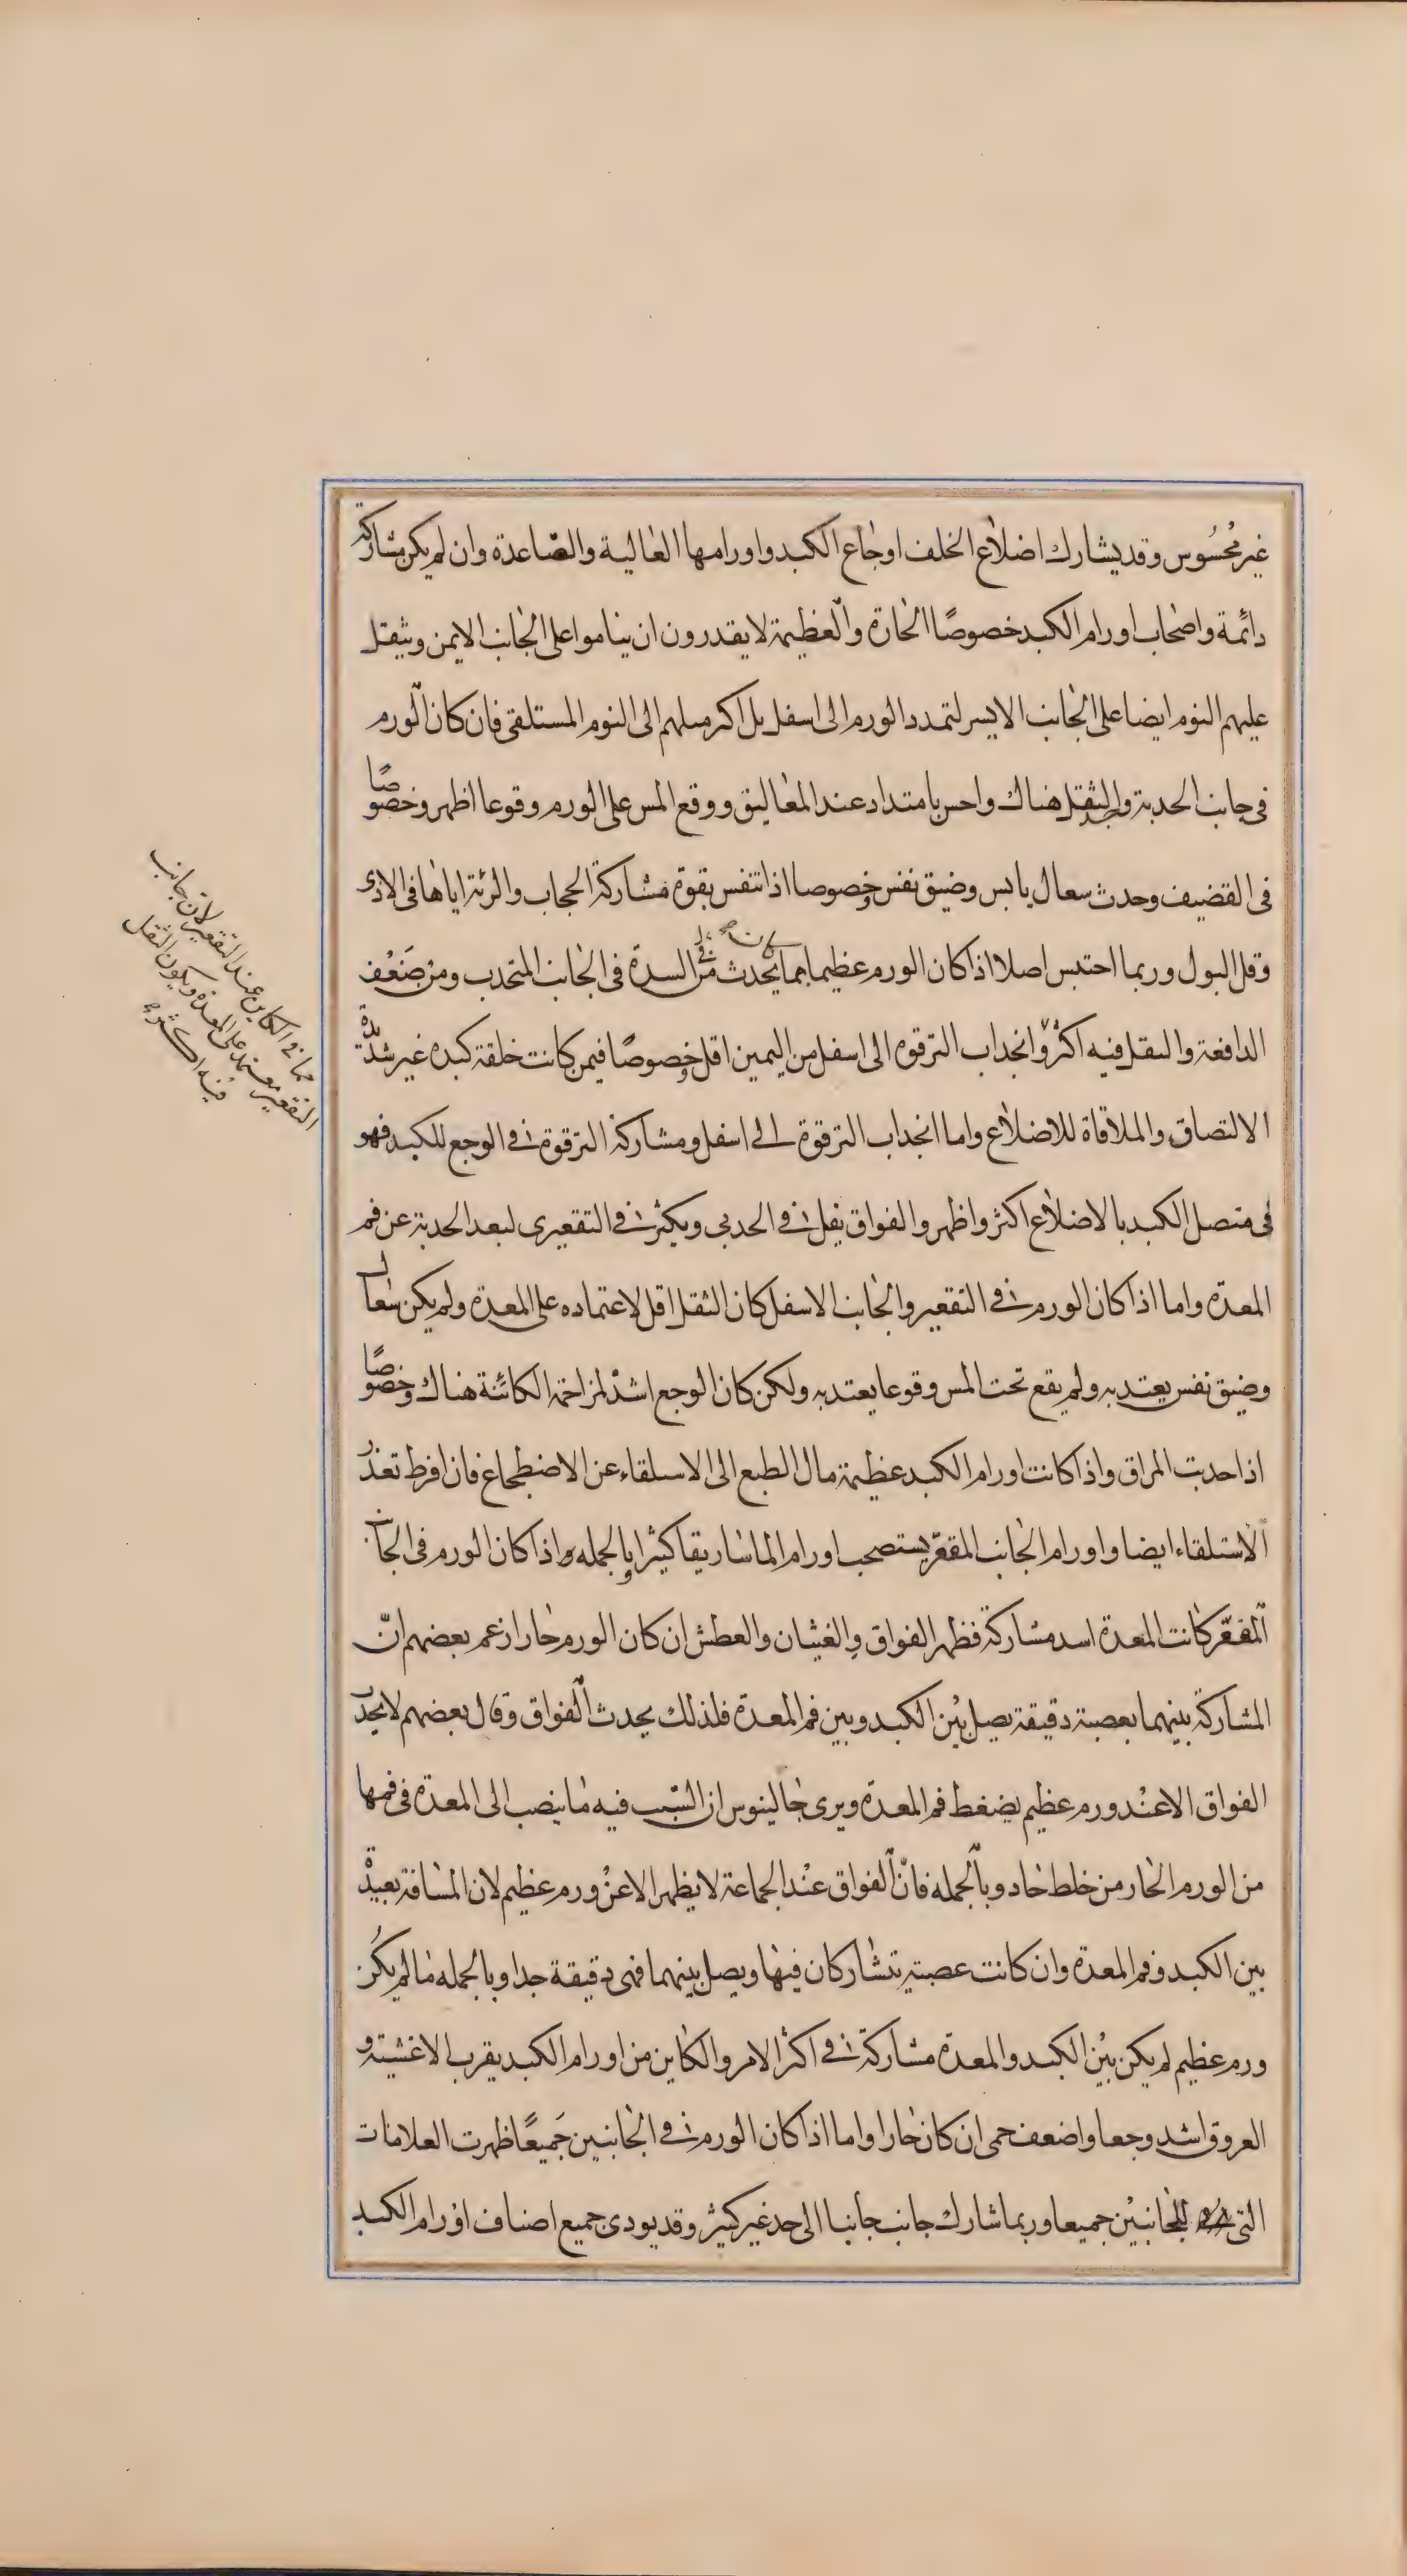 غير محسوس وقد يشارك اضلاع الخلف اوجاع الكبد واورامها العالية والصاعدة وان لم يكن مشاركة
دائمة واصحاب اورام الكبد خصوصًا الحارة والعظيمة لا يقدرون ان يناموا على الجانب الايمن ويثقل
عليهم النوم ايضا على الجانب الايسر لتمدد الورم الى اسفل بل اكثر ميلهم الى النوم المستلقى فان كان الورم
فى جانب الحدبة وجد الثقل هناك واحس بامتداد عند المعاليق ووقع المس على الورم وقوعا اظهر وخصوصًا
فى القضيف وحدث سعال يابس وضيق نفس وخصوصا اذا تنفس بقوة مشاركة الحجاب والرئة اياها فى الاذى
وقل البول وربما احتبس اصلا اذا كان الورم عظيما بما يحدث من السدة فى الجانب المتحدب ومن ضَعْف
الدافعة والثقل فيه اكثر وانجذاب الترقوه الى اسفل من اليمين اقل وخصوصًا فيمن كانت خلقة كبده غير شديدة
الالتصاق والملاقاة للاضلاع واما انجذاب الترقوة الى اسفل ومشاركة الترقوة فى الوجع للكبد فهو
فى متصل الكبد بالاضلاع اكثر واظهر والفواق يقل فى الحدبى ويكثر فى التقعيرى لبعد الحدبة عن فم
المعدة واما اذا كان الورم فى التقعير والجانب الاسفل كان الثقل اقل لاعتماده على المعدة ولم يكن سعال
وضيق نفس يعتد به ولم يقع تحت المس وقوعا يعتد به ولكن كان الوجع اشد لمزاحمة الكائنة هناك وخصوصًا
اذا حدبت المراق واذا كانت اورام الكبد عظيمة مال الطبع الى الاستلقاء عن الاضطجاع فان افرط تعذر
الاستلقاء ايضا واورام الجانب المقعّر يستصحب اورام الماساريقا كثيرا وبالجمله واذا كان الورم فى الجانب
المقعّر كانت المعدة اشد مشاركة فظهر الفواق والغثيان والعطش ان كان الورم حارا زعم بعضهم انّ
المشاركة بينهما بعصبة دقيقة يصل بين الكبد وبين فم المعدة فلذلك يحدث الفواق وقال بعضهم لا يحدث
الفواق الا عند ورم عظيم يضغط فم المعدة ويرى جالينوس ان السّبب فيه ما ينصب الى المعدة فى فمها
من الورم الحار من خلط حاد وبالجمله فانّ الفواق عند الجماعة لا يظهر الا عن ورم عظيم لان المسافة بعيدة
بين الكبد وفم المعدة وان كانت عصبة تتشاركان فيها ويصل بينهما فهى دقيقة جدا وبالجمله ما لم يكُن
ورم عظيم لم يكن بين الكبد والمعدة مشاركة فى اكثر الامر والكاين من اورام الكبد يقرب الاغشية و
العروق اشد وجعا واضعف حمى ان كان حارا واما اذا كان الورم فى الجانبين جَميعًا ظهرت العلامات
التى للجانبيْن جميعا وربما شارك جانب جانبا الى حد غير كثير وقد يودى جميع اصناف اورام الكبد
مما فى الكاين عند التقعير لان جانب
التقعير معتمد على المعدة ويكون الثقل
فيه اكثر